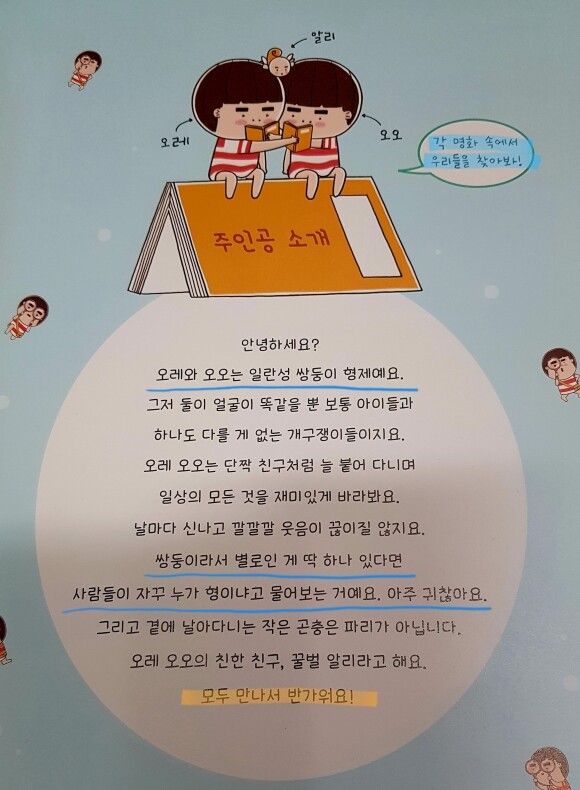 알리
오레
오오
각 명화 속에서
우리들을 찾아봐!
주인공 소개
안녕하세요?
오레와 오오는 일란성 쌍둥이 형제예요.
그저 둘이 얼굴이 똑같을 뿐 보통 아이들과
하나도 다를 게 없는 개구쟁이들이지요.
오레 오오는 단짝 친구처럼 늘 붙어 다니며
일상의 모든 것을 재미있게 바라봐요.
날마다 신나고 깔깔깔 웃음이 끊이질 않지요.
쌍둥이라서 별로인 게 딱 하나 있다면
사람들이 자꾸 누가 형이냐고 물어보는 거예요. 아주 귀찮아요.
그리고 곁에 날아다니는 작은 곤충은 파리가 아닙니다.
오레 오오의 친한 친구, 꿀벌 알리라고 해요.
모두 만나서 반가워요!